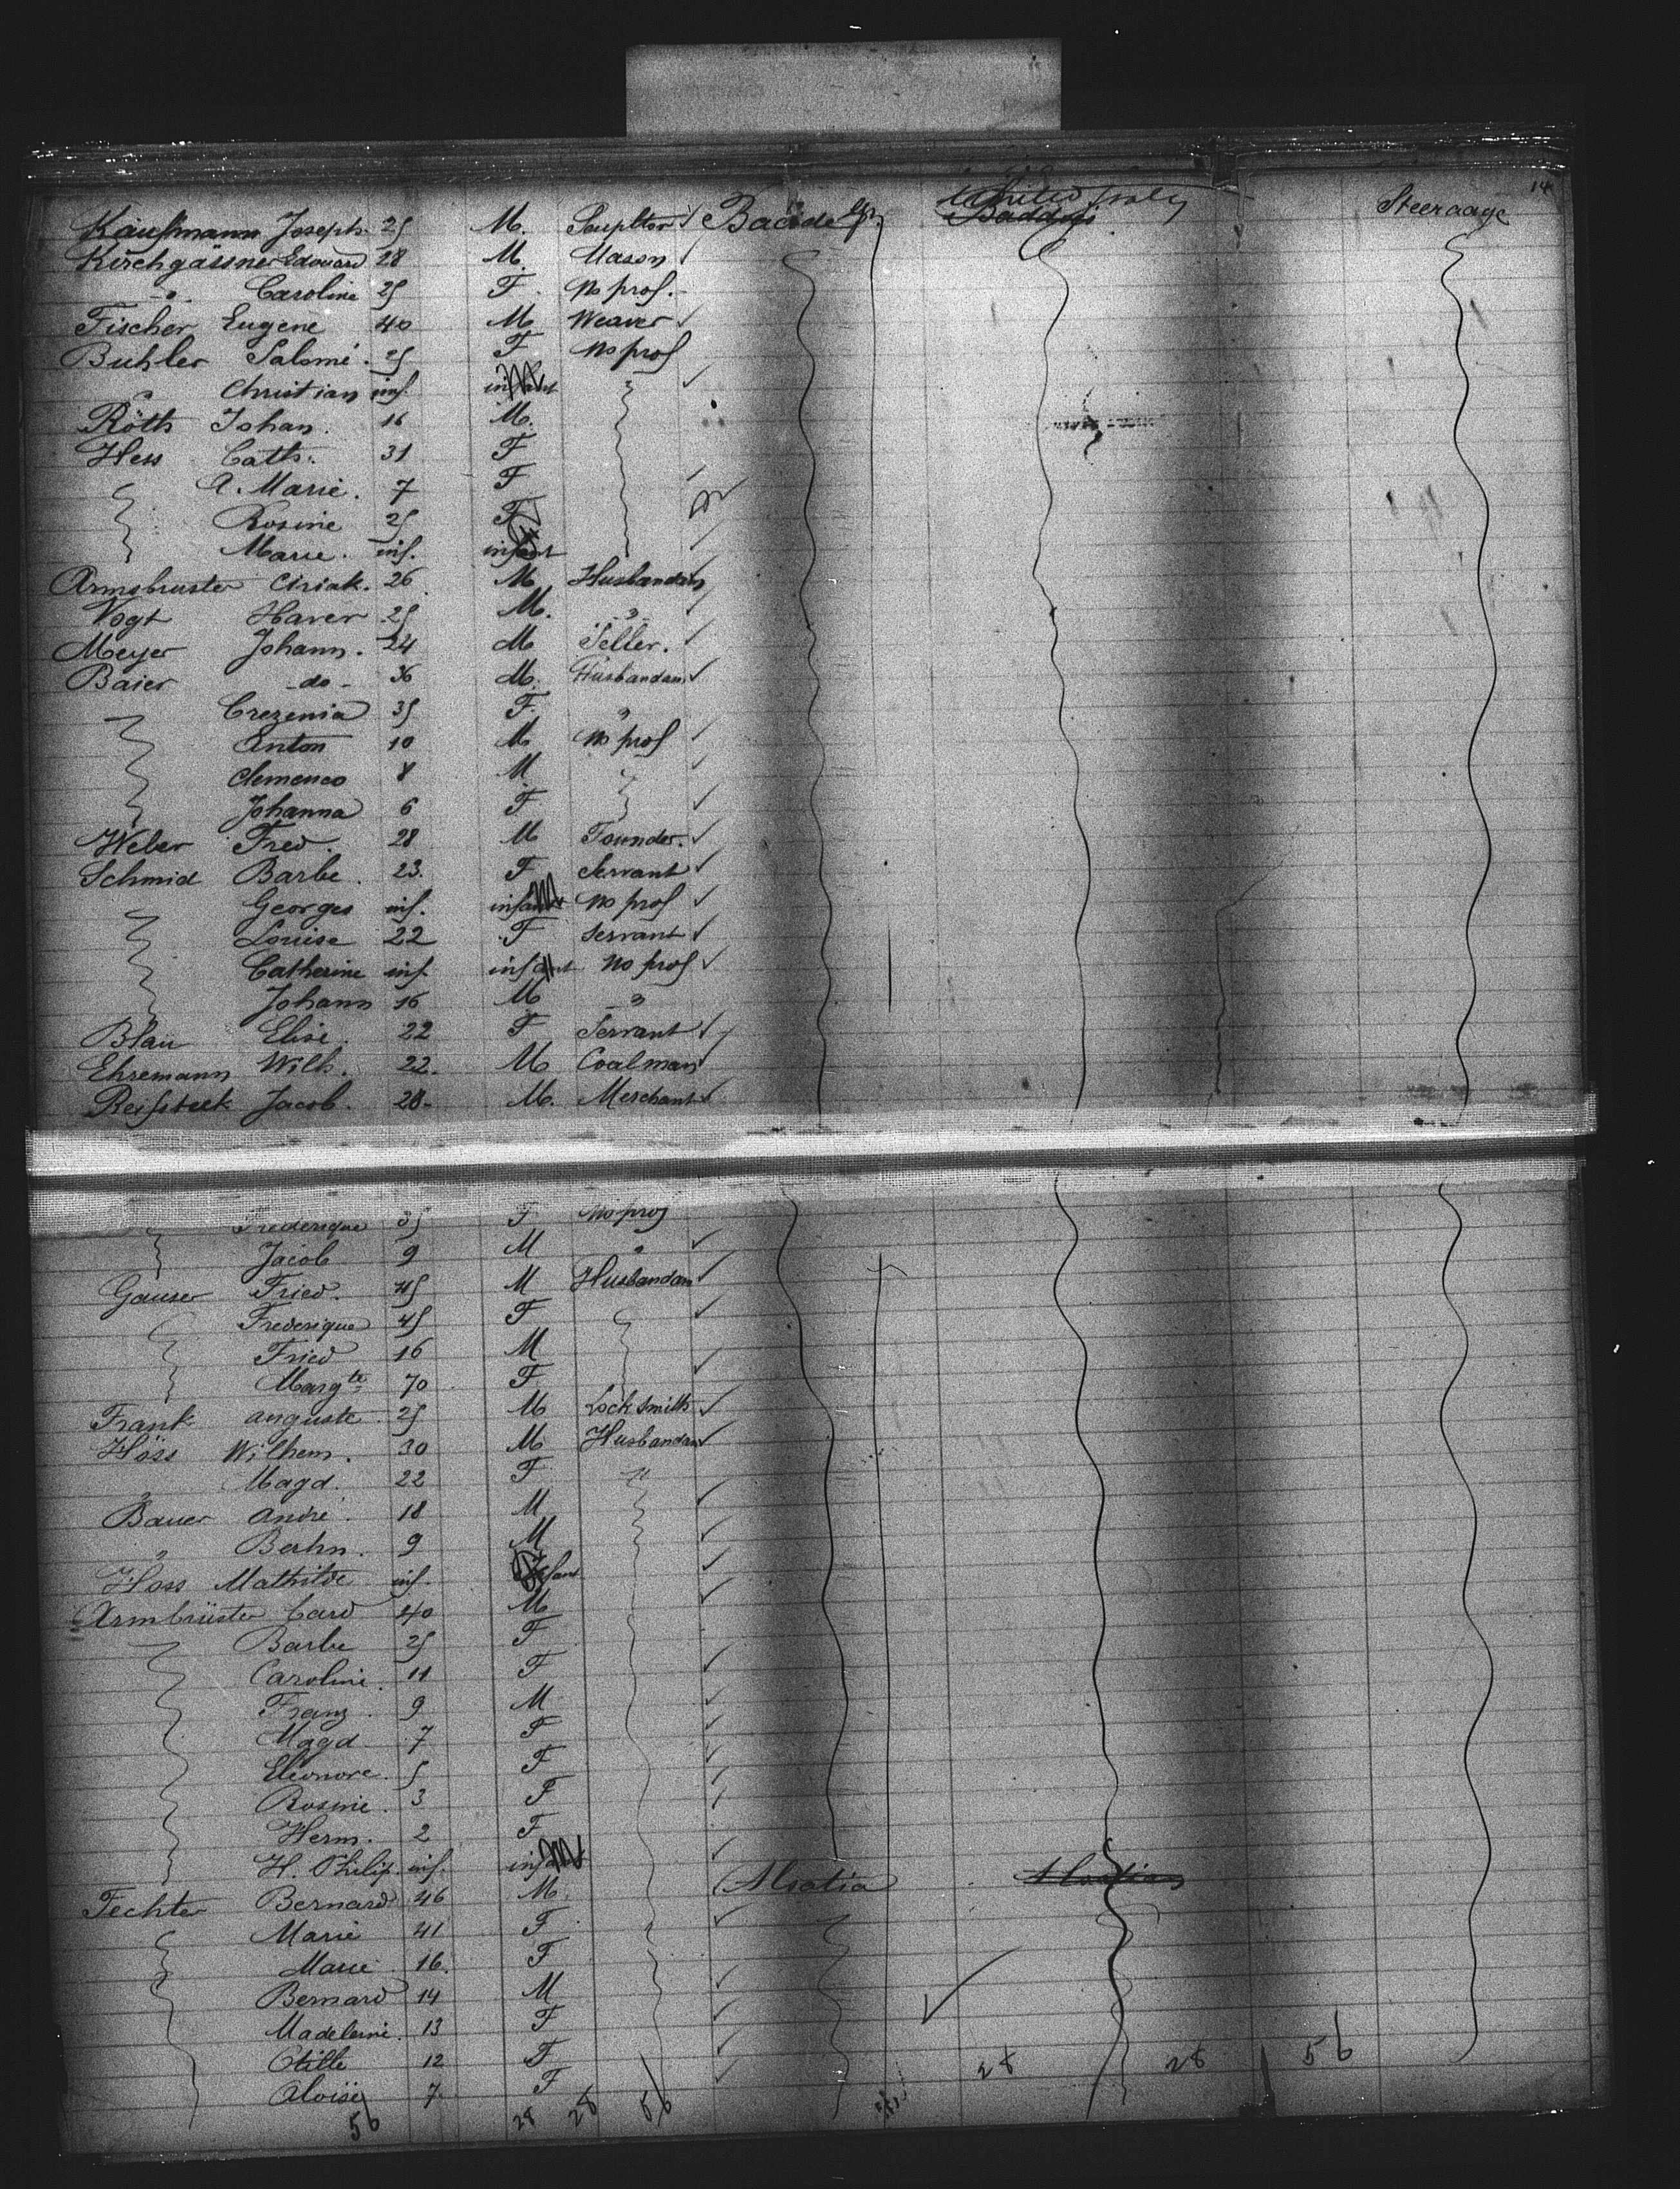 14
Kaufmann Joseph. 25 M. Sculptor Bade United Italy Baddois Steeraage
Kirchgässner Edouard 28 M. Mason
-"- Caroline 25 F. No prof.
Fischer Eugene 40 M. Weaver
Buhler Salomé. 25 F No prof
" Christian inf. infant
Röth Johan. 16 M.
Hess Cath. 31 F
A. Marie. 7 F
Rosine 25 F
Marie. inf. infant
Armsbruster Ciriak. 26 M Husbandan
Vogt Xaver 25 M. "
Meyer Johann. 24 M
Baier -do- 36 M. Husbandan
Crezenia 35 F. "
Anton 10 M No prof
Clemence 8 M
Johanna 6 F
Weber Fred. 28 M Founder.
Schmid Barbe. 23. F Servant
Georges inf. infant No prof
Louise 22 F Servant
Catherine inf infant No prof
Johann 16 M "
Blau Elise 22 F Servant
Ehremann Wilh. 22. M Coalman
Reifsteck Jacob. 28. M. Merchant
Frederique 35 F No prof
Jacob 9 M "
Gauser Fried. 45 M Husbandan
Frederique 45 F
Fried 16 M
Margte 70 F
Frank auguste. 25 M Locksmith
Höss Wilhem. 30 M Husbandan
" Magd. 22 F "
Bauer André. 18 M
" Berhn. 9 M
Hoss Mathilde inf. infant
Armbrüster Carl 40 M
Barbe 25 F
Caroline. 11 F
Franz. 9 M
Magd 7 F
Eleonore. 5 F
Rosine. 3 F
Herm. 2 F
H. Philip inf. infant
Fechter Bernard 46 M. Alsatia Alsatian
Marie 41 F
Marie 16. F
Bernard 14 M
Madeleine. 13 F
Otille 12 F
Aloïse 7. F
56 28 28 56 28 28 56